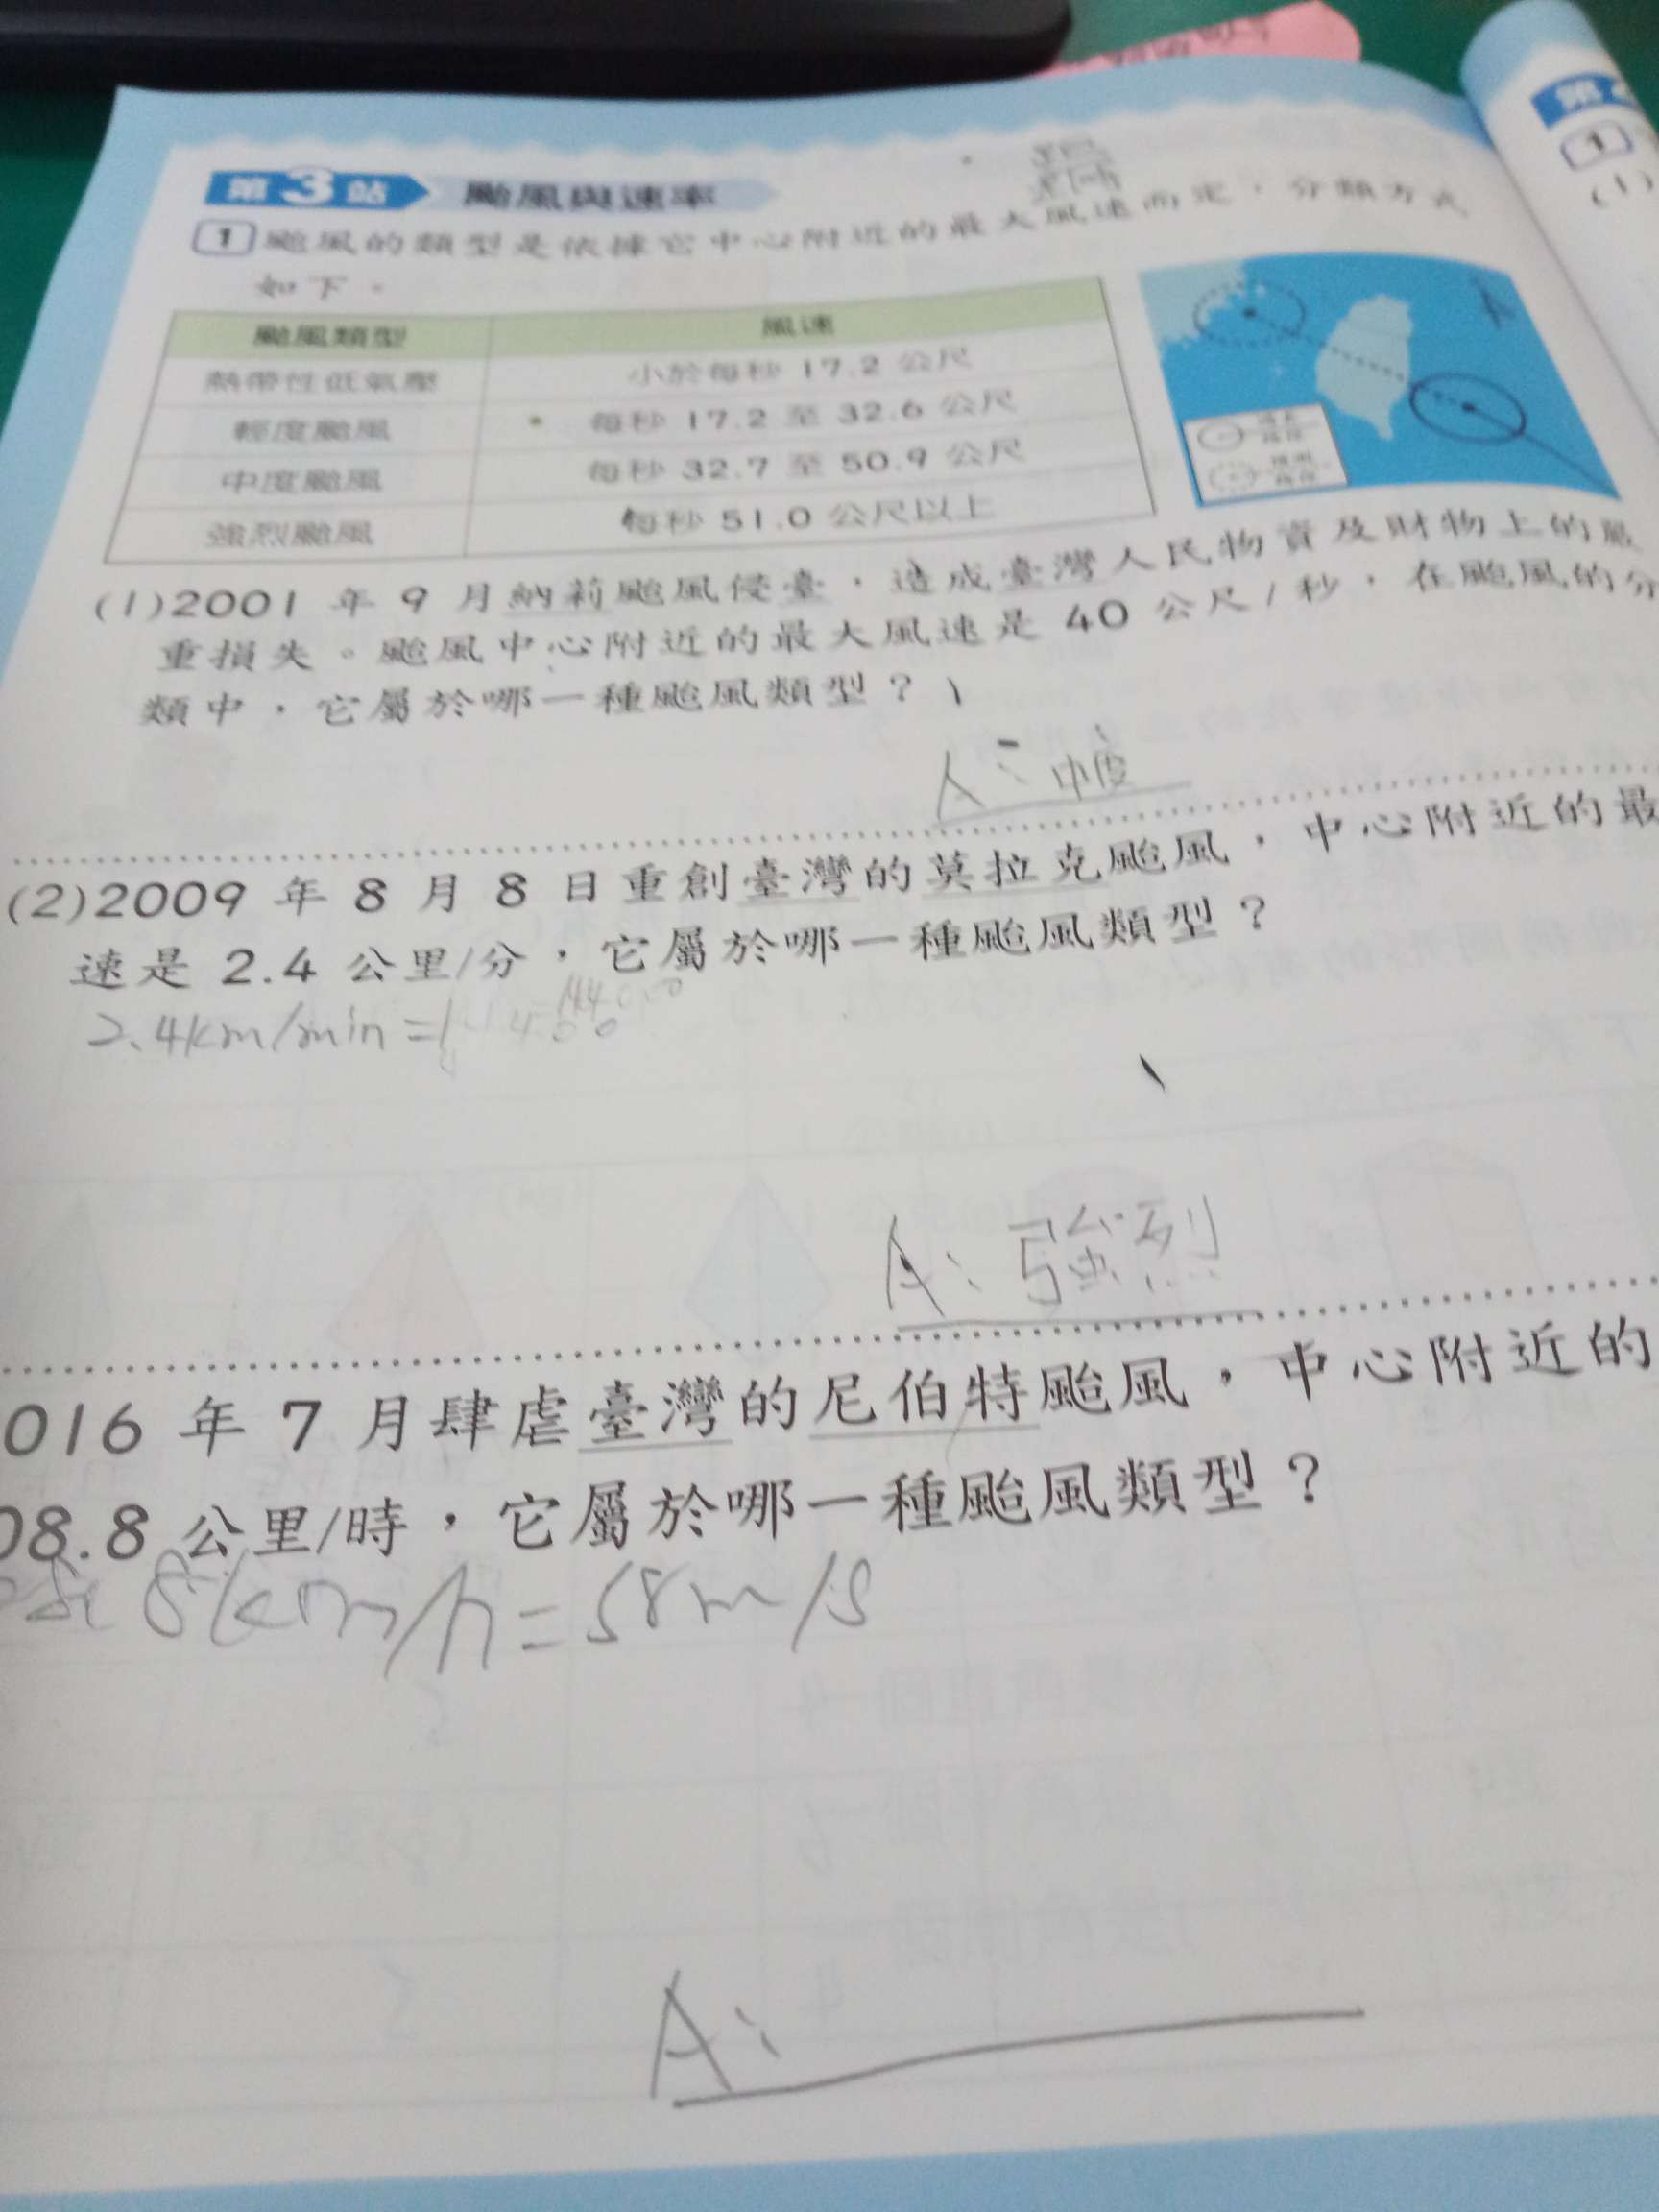 第3站 颱風與速率
1 颱風的類型是依據它中心附近的最大風速而定，分類方式
如下。
颱風類型 風速
熱帶性低氣壓 小於每秒 17.2 公尺
輕度颱風 每秒 17.2 至 32.6 公尺
中度颱風 每秒 32.7 至 50.9 公尺
強烈颱風 每秒 51.0 公尺以上
(1)2001 年 9 月納莉颱風侵臺，造成臺灣人民物資及財物上的嚴
重損失。颱風中心附近的最大風速是 40 公尺/秒，在颱風的分
類中，它屬於哪一種颱風類型？
A：中度
(2)2009 年 8 月 8 日重創臺灣的莫拉克颱風，中心附近的最
速是 2.4 公里/分，它屬於哪一種颱風類型？
2.4km/min=
A：強烈
016 年 7 月肆虐臺灣的尼伯特颱風，中心附近的
08.8 公里/時，它屬於哪一種颱風類型？
8km/h=58m/s
A：
第
1
(1)